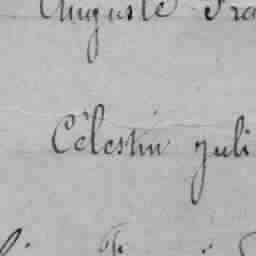 Auguste Fra
Célestin Juli